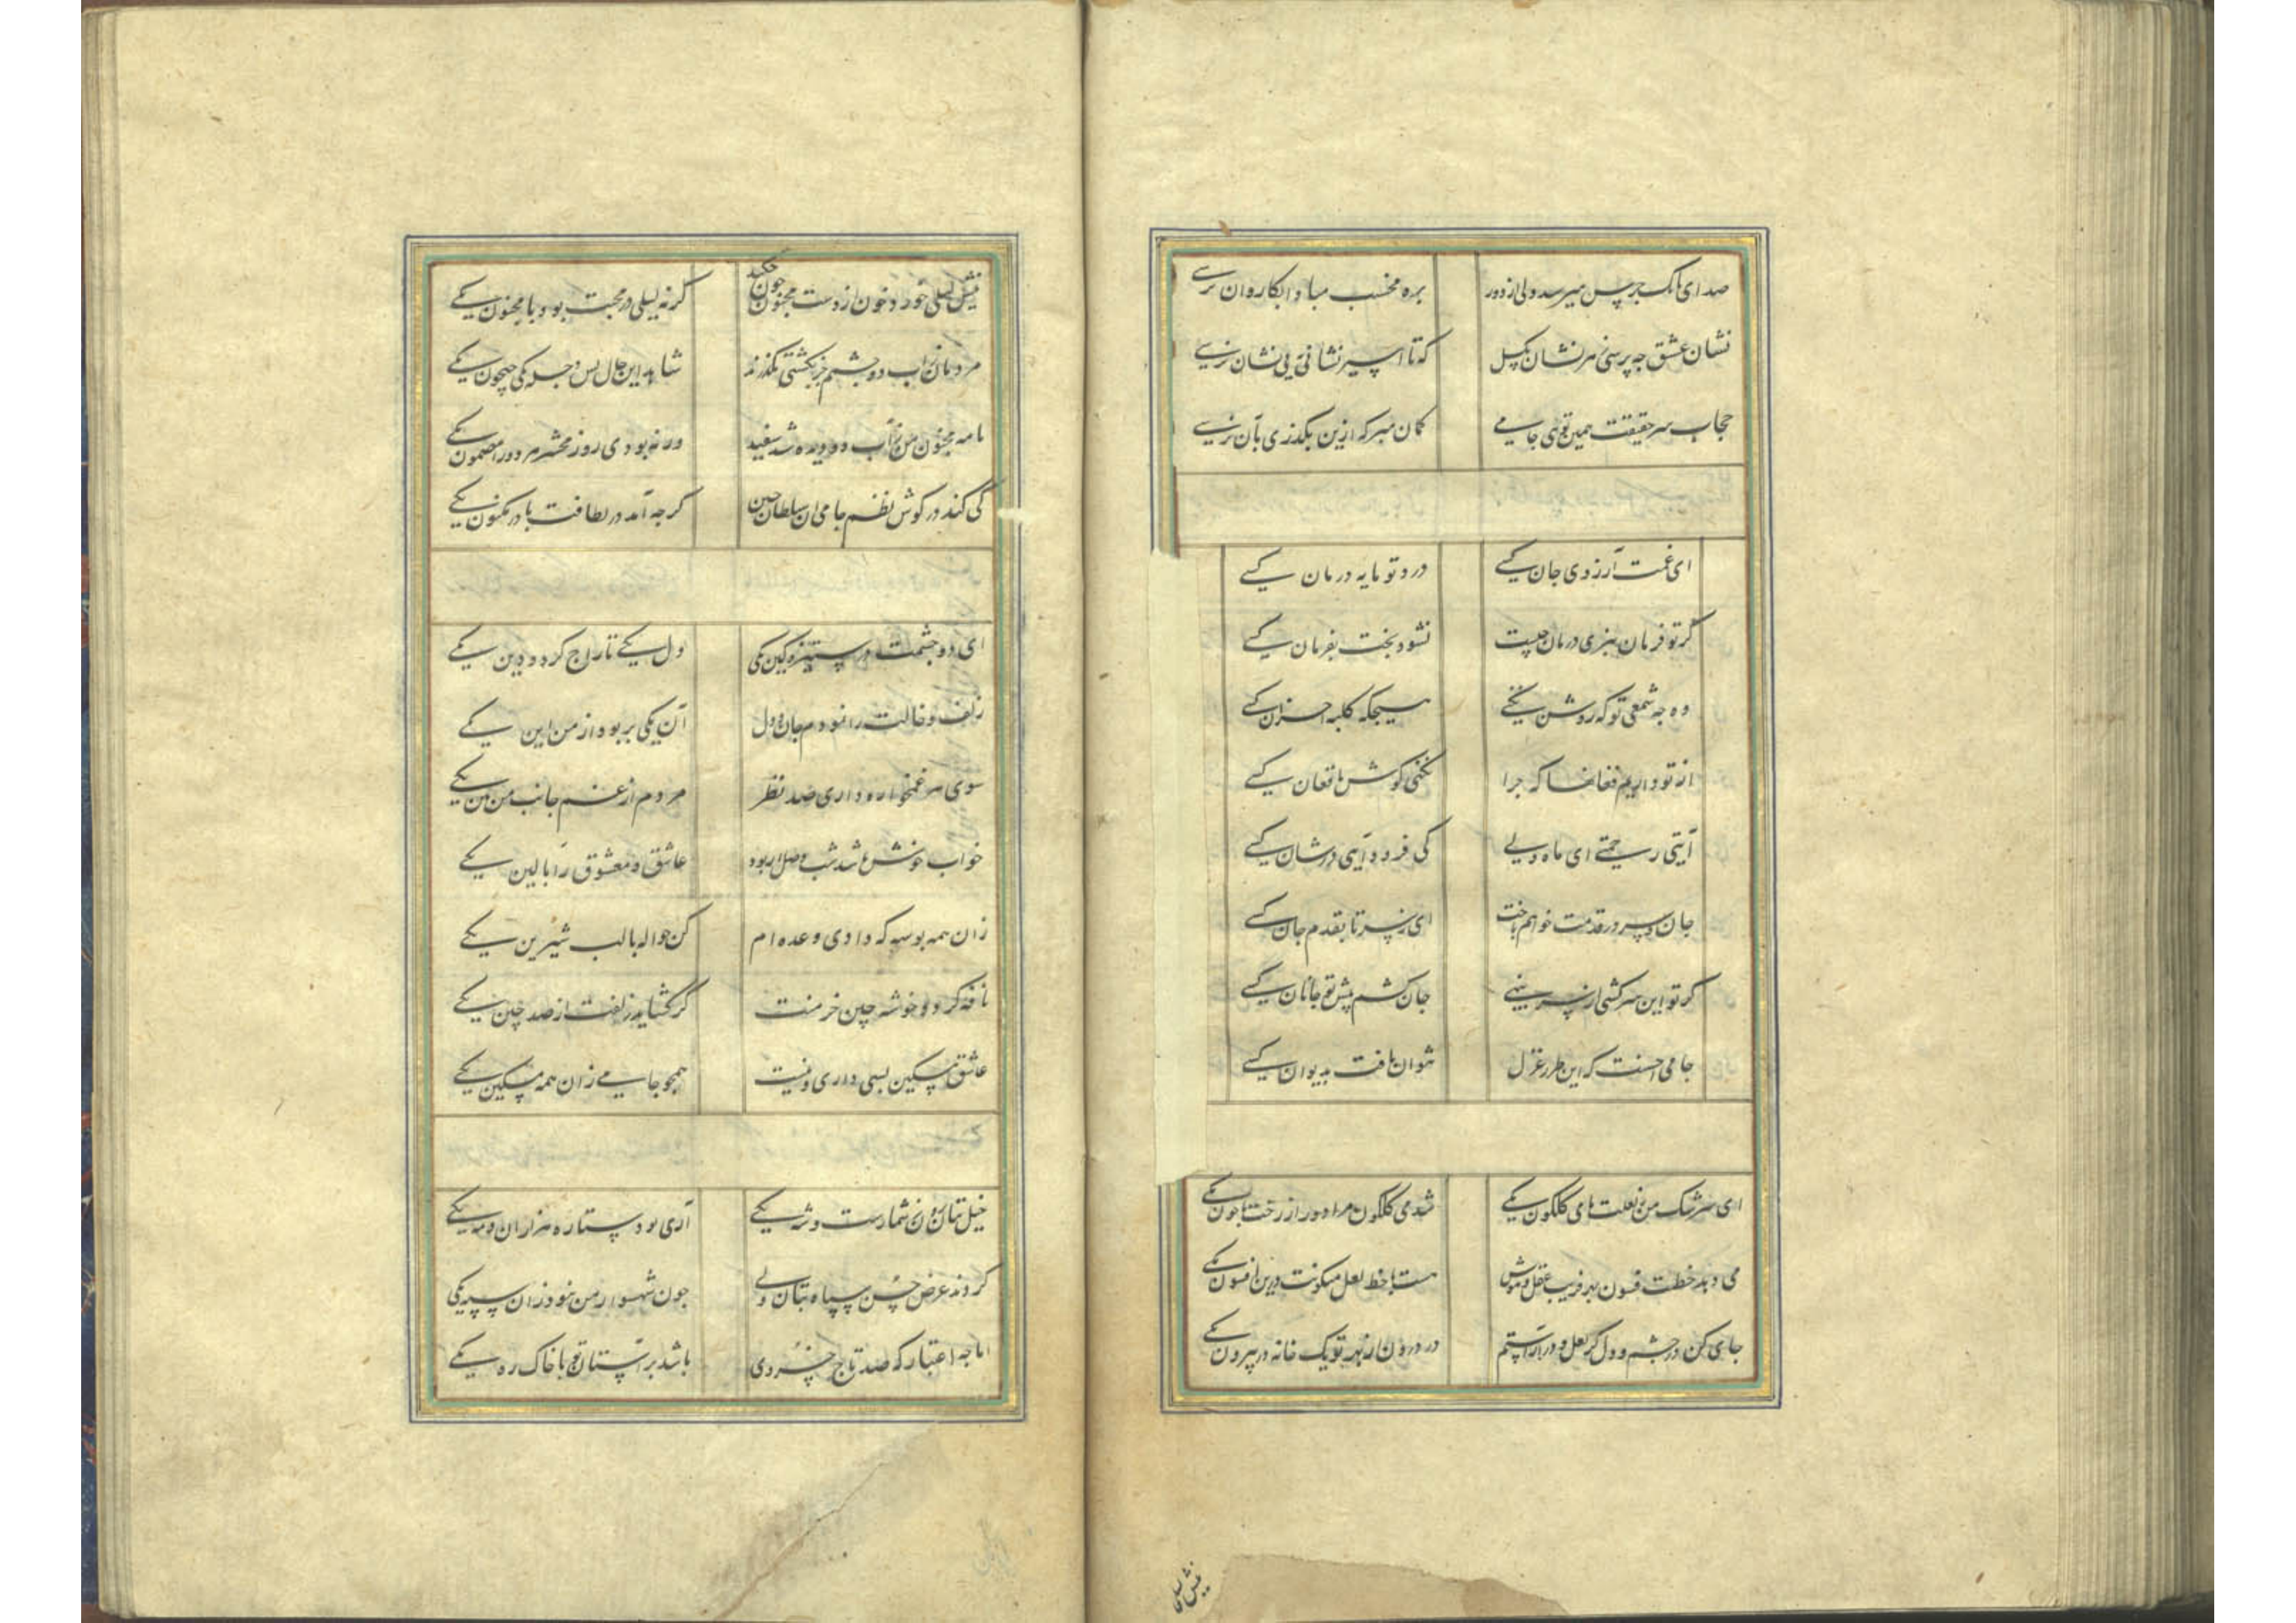 صدای بانک جرس میرسد ولی از دور بره مخسب مبادا بکاروان نرسی
نشان عشق چه پرسی ز هر نشان بکسل که تا اسیر نشانی به بی نشان نرسی
حجاب سر حقیقت همین توئی جامی کمان مبر که ازین نکذری بآن نرسی
ای غمت آرزوی جان کسی درد تو مایه درمان کسی
کر تو فرمان نبری درمان چیست نشود بخت بفرمان کسی
وه چه شمعی تو که روشن نکنی هیچکه کلبه احزان کسی
از تو داریم فغانها که چرا نکنی کوش بافغان کسی
آیتی رحمتی ای ماه ولی کی فرود آیی در شان کسی
جان و سر در قدمت خواهم باخت ای ز سر تا بقدم جان کسی
کر تو این سرکشی از سر بنهی جان کشم پیش تو جانان کسی
جامی احسنت که این طرز غزل نتوان یافت بدیوان کسی
ای سرشک من ز لعلت های کلکون یکی شد می کلکون مرا دور از رخت با خون یکی
می دهد خطت فسون بهر فریب عقل و هوش هست با خط لعل میکونت درین افسون یکی
جای کن در چشم و دل کز لعل و در آراستم در درون از بهر تو یک خانه در بیرون یکی
نیش لیلی خورد و خون از دست مجنون چون چکید کر نه لیلی در محبت بود با مجنون یکی
مردمان ز آب دو چشمم جز بکشتی نکذرند شاهد این حال بس دجله یکی جیحون یکی
نامه مجنون من ز آب دو دیده شد سفید ور نه بودی روز محشر هر دو را مضمون یکی
کی کند در کوش نظم جامی آن سلطان حسن کرچه آمد در لطافت با در مکنون یکی
ای دو چشمت در ستیز و کین یکی دل یکی تاراج کرد و دین یکی
زلف و خالت را نمودم جان و دل آن یکی بربود از من این یکی
سوی هر غمخواره داری صد نظر مردم از غم جانب من بین یکی
خواب خوش شد شب وصل ار بود عاشق و معشوق را بالین یکی
زان همه بوسه که دادی وعده ام کن حواله با لب شیرین یکی
نافه کردد خوشه چین خرمنت کر کشاید زلفت از صد چین یکی
عاشق مسکین بسی داری و نیست همچو جامی زان همه مسکین یکی
خیل بتان برون ز شمارست و شه یکی آری بود ستاره هزاران و مه یکی
کردند عرض حسن سپاه بتان ولی چون شهسوار من نبود زان سپه یکی
ما را چه اعتبار که صد تاج خسروی باشد بر آستان تو با خاک ره یکی
نیش لیلی